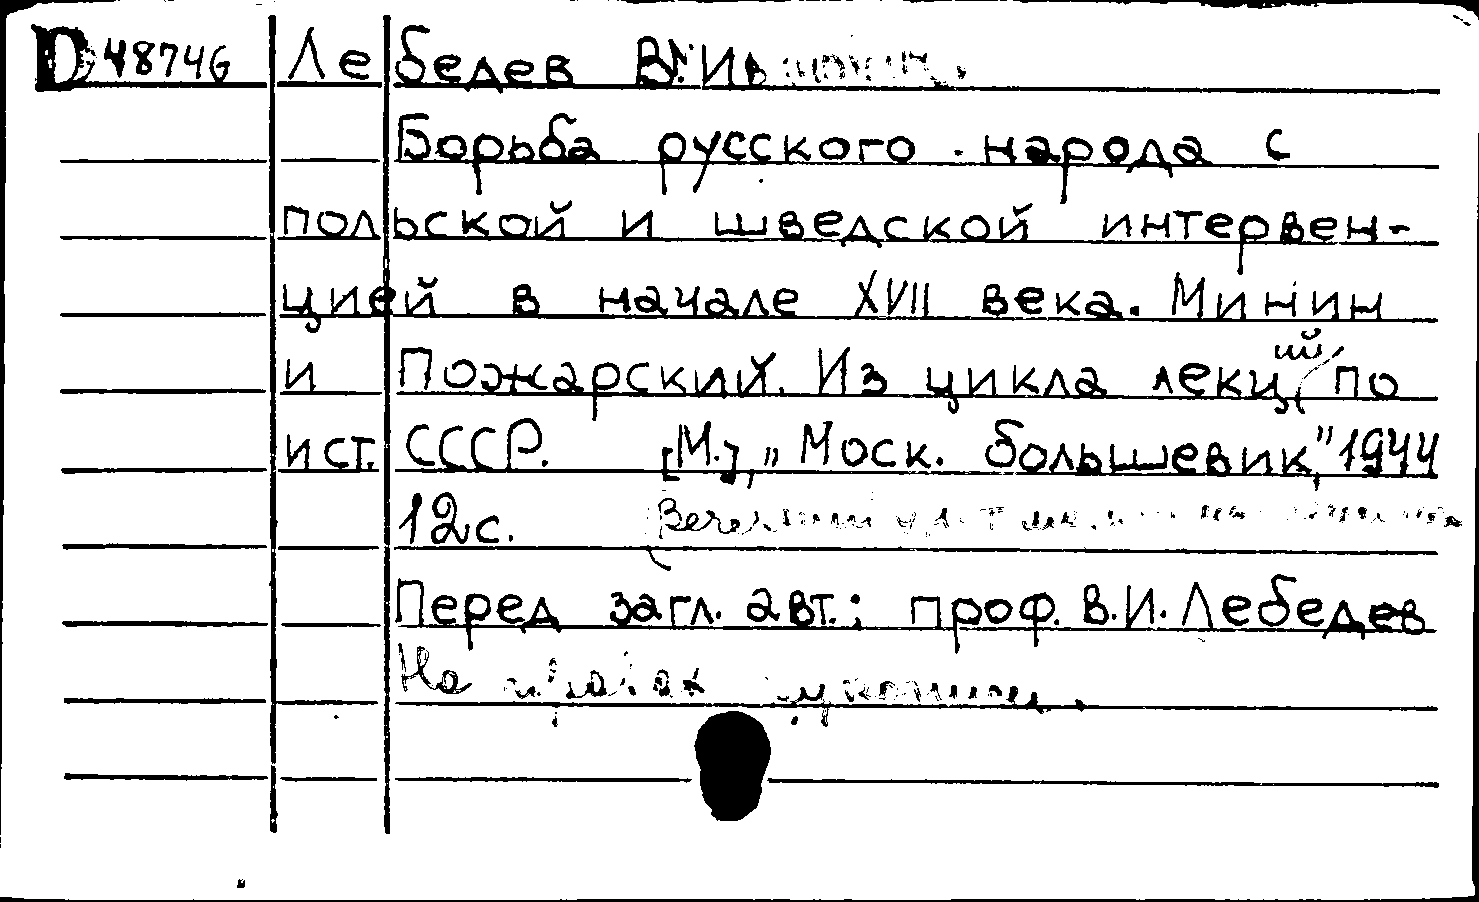 D 48746 Лебедев В. И.
Борьба русского народа с
польской и шведской интервен-
цией в начале XVII века. Минин
и Пожарский. Из цикла лекций по
ист. СССР. [М.], „Моск. большевик," 1944
12с.
Перед загл. авт.: проф. В.И. Лебедев
На правах рукописи.